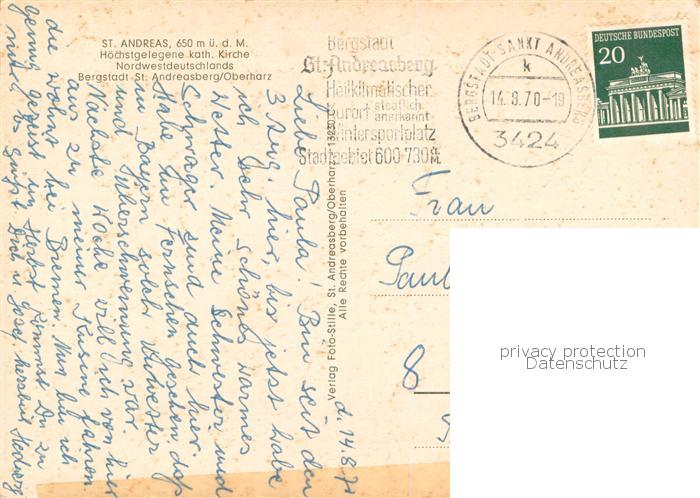 ST. ANDREAS, 650 m ü. d. M.
Höchstgelegene kath. Kirche
Nordwestdeutschlands
Bergstadt St. Andreasberg/Oberharz
Bergstadt
St. Andreasberg
Heilklimatischer
Kurort staatlich anerkannt
Wintersportplatz
Stadtgebiet 600-730 m
BERGSTADT-SANKT ANDREASBERG
k
14.8.70-19
3424
DEUTSCHE BUNDESPOST
20
Verlag Foto-Stille, St. Andreasberg/Oberharz
Alle Rechte vorbehalten
d. 14.8.70
Liebe Paula! Bin seit den
3 Aug. hier, bis jetzt habe
ich sehr schönes warmes
Wetter. Meine Schwester und
Schwager sind auch hier.
Habe im Fernsehen gesehen daß
in Bayern solch Unwetter
und Überschwemmung war.
Nächste Woche will ich von hier
aus zu meiner Kusine fahren
die wohnt bei Bremen. Nun bin ich
genug gereist im Herbst kommst Du zu
mir. Es grüßt Dich u. Josef herzlich Hedwig
Frau
8
privacy protection
Datenschutz